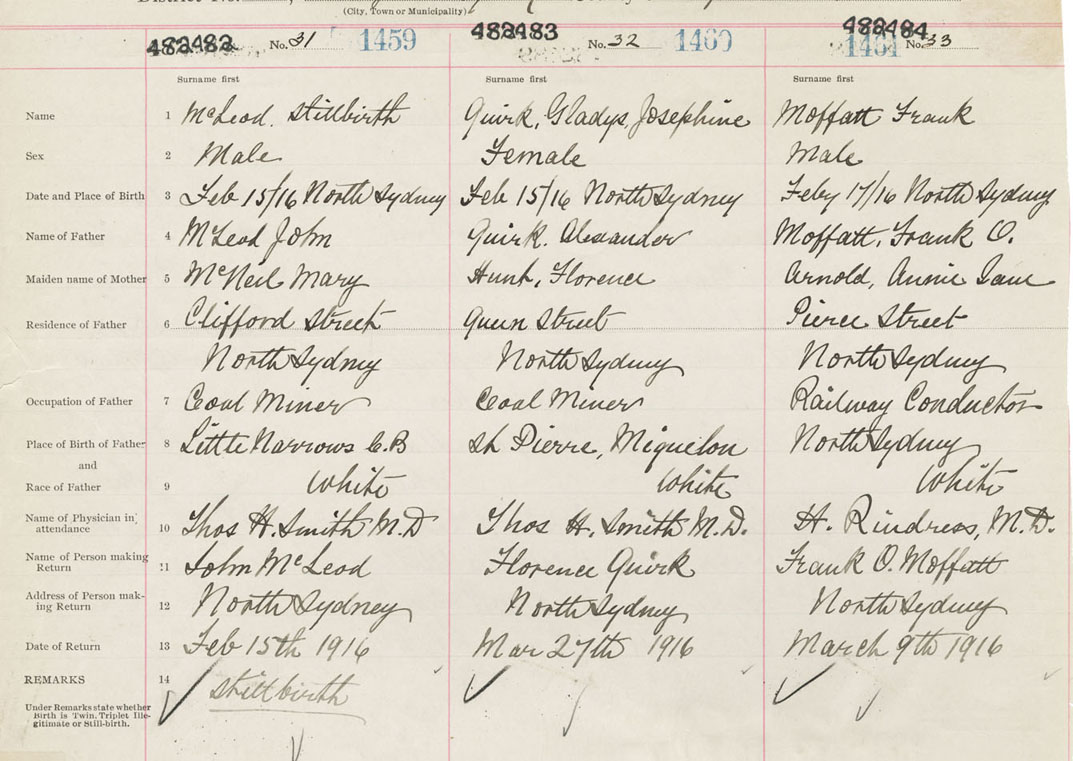 (City, Town or Municipality)
482482 No. 31 1459 482483 No. 32 1460 482484 1461 No. 33
Surname first Surname first Surname first
Name 1 McLeod. Stillbirth Quirk, Gladys, Josephine Moffatt Frank
Sex 2 Male Female Male
Date and Place of Birth 3 Feb 15/16 North Sydney Feb 15/16 North Sydney Feby 17/16 North Sydney
Name of Father 4 McLeod John Quirk. Alexander Moffatt, Frank O.
Maiden name of Mother 5 McNeil Mary Hunt, Florence Arnold, Annie Jane
Residence of Father 6 Clifford Street Queen Street Pierce Street
North Sydney North Sydney North Sydney
Occupation of Father 7 Coal Miner Coal Miner Railway Conductor
Place of Birth of Father 8 Little Narrows C.B St Pierre, Miquelon North Sydney
and
Race of Father 9 White White White
Name of Physician in attendance 10 Thos H. Smith M.D Thos H. Smith M.D. H. Rindress, M.D.
Name of Person making Return 11 John McLeod Florence Quirk Frank O. Moffatt
Address of Person mak-ing Return 12 North Sydney North Sydney North Sydney
Date of Return 13 Feb 15th 1916 Mar 27th 1916 March 9th 1916
REMARKS 14 Stillbirth
Under Remarks state whether
Birth is Twin. Triplet Ille-
gitimate or Still-birth.